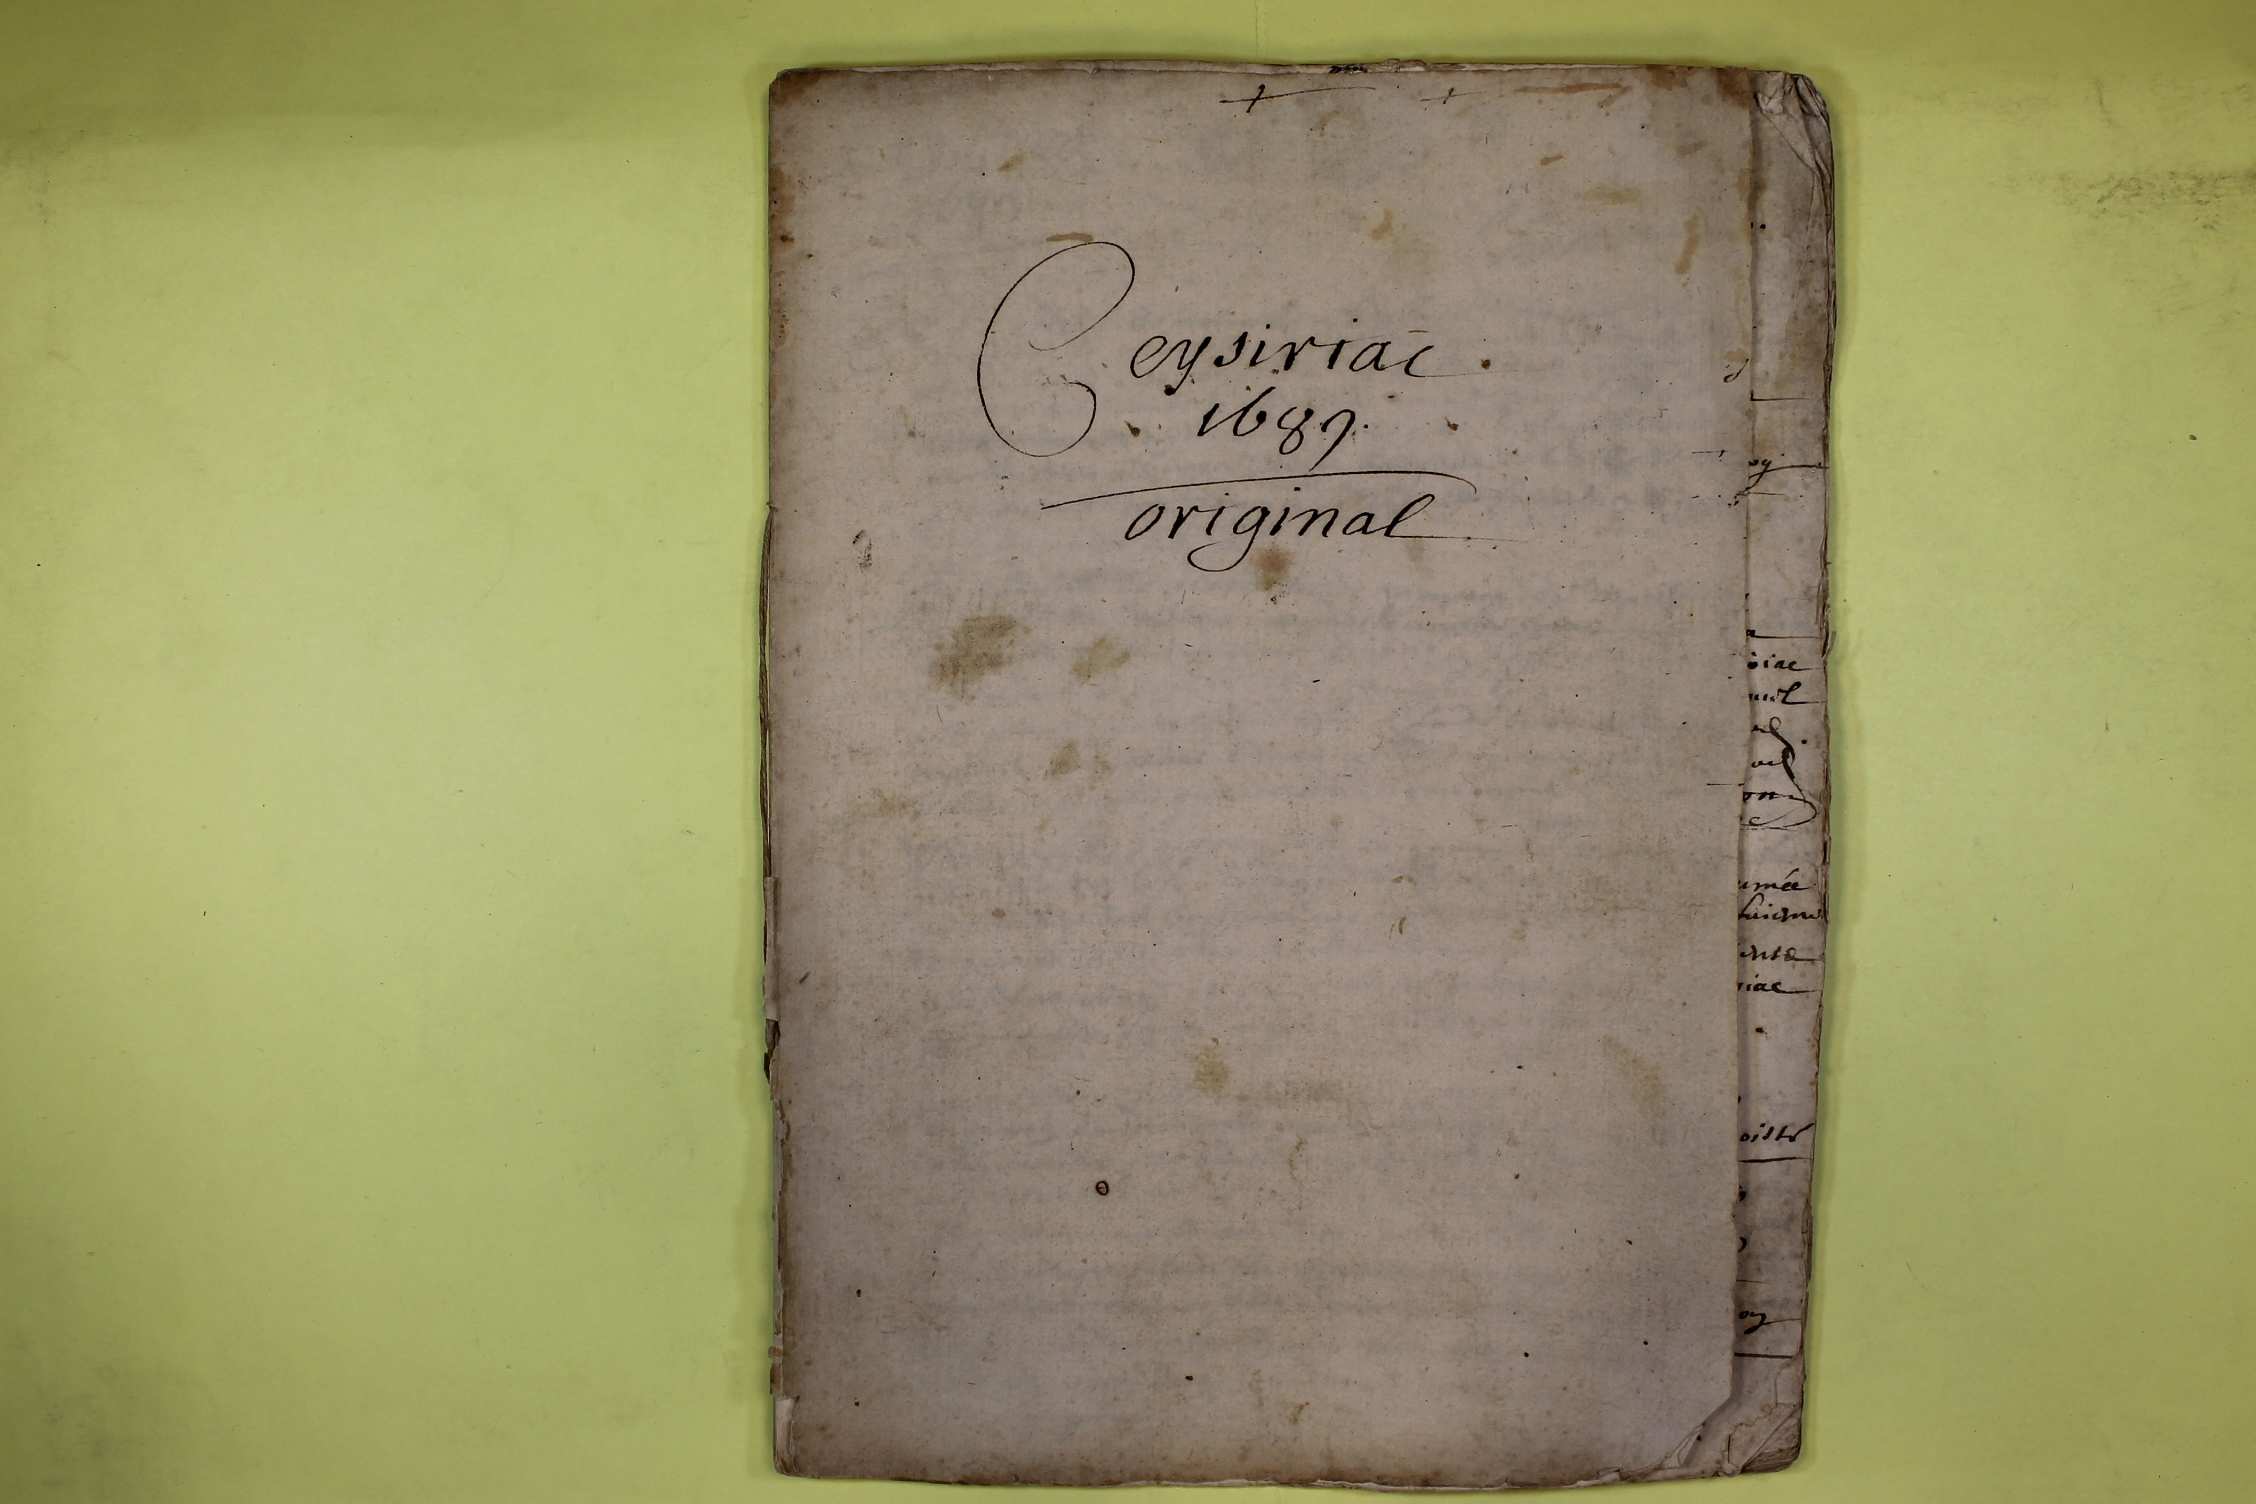 Ceysiriac.
1687.
original